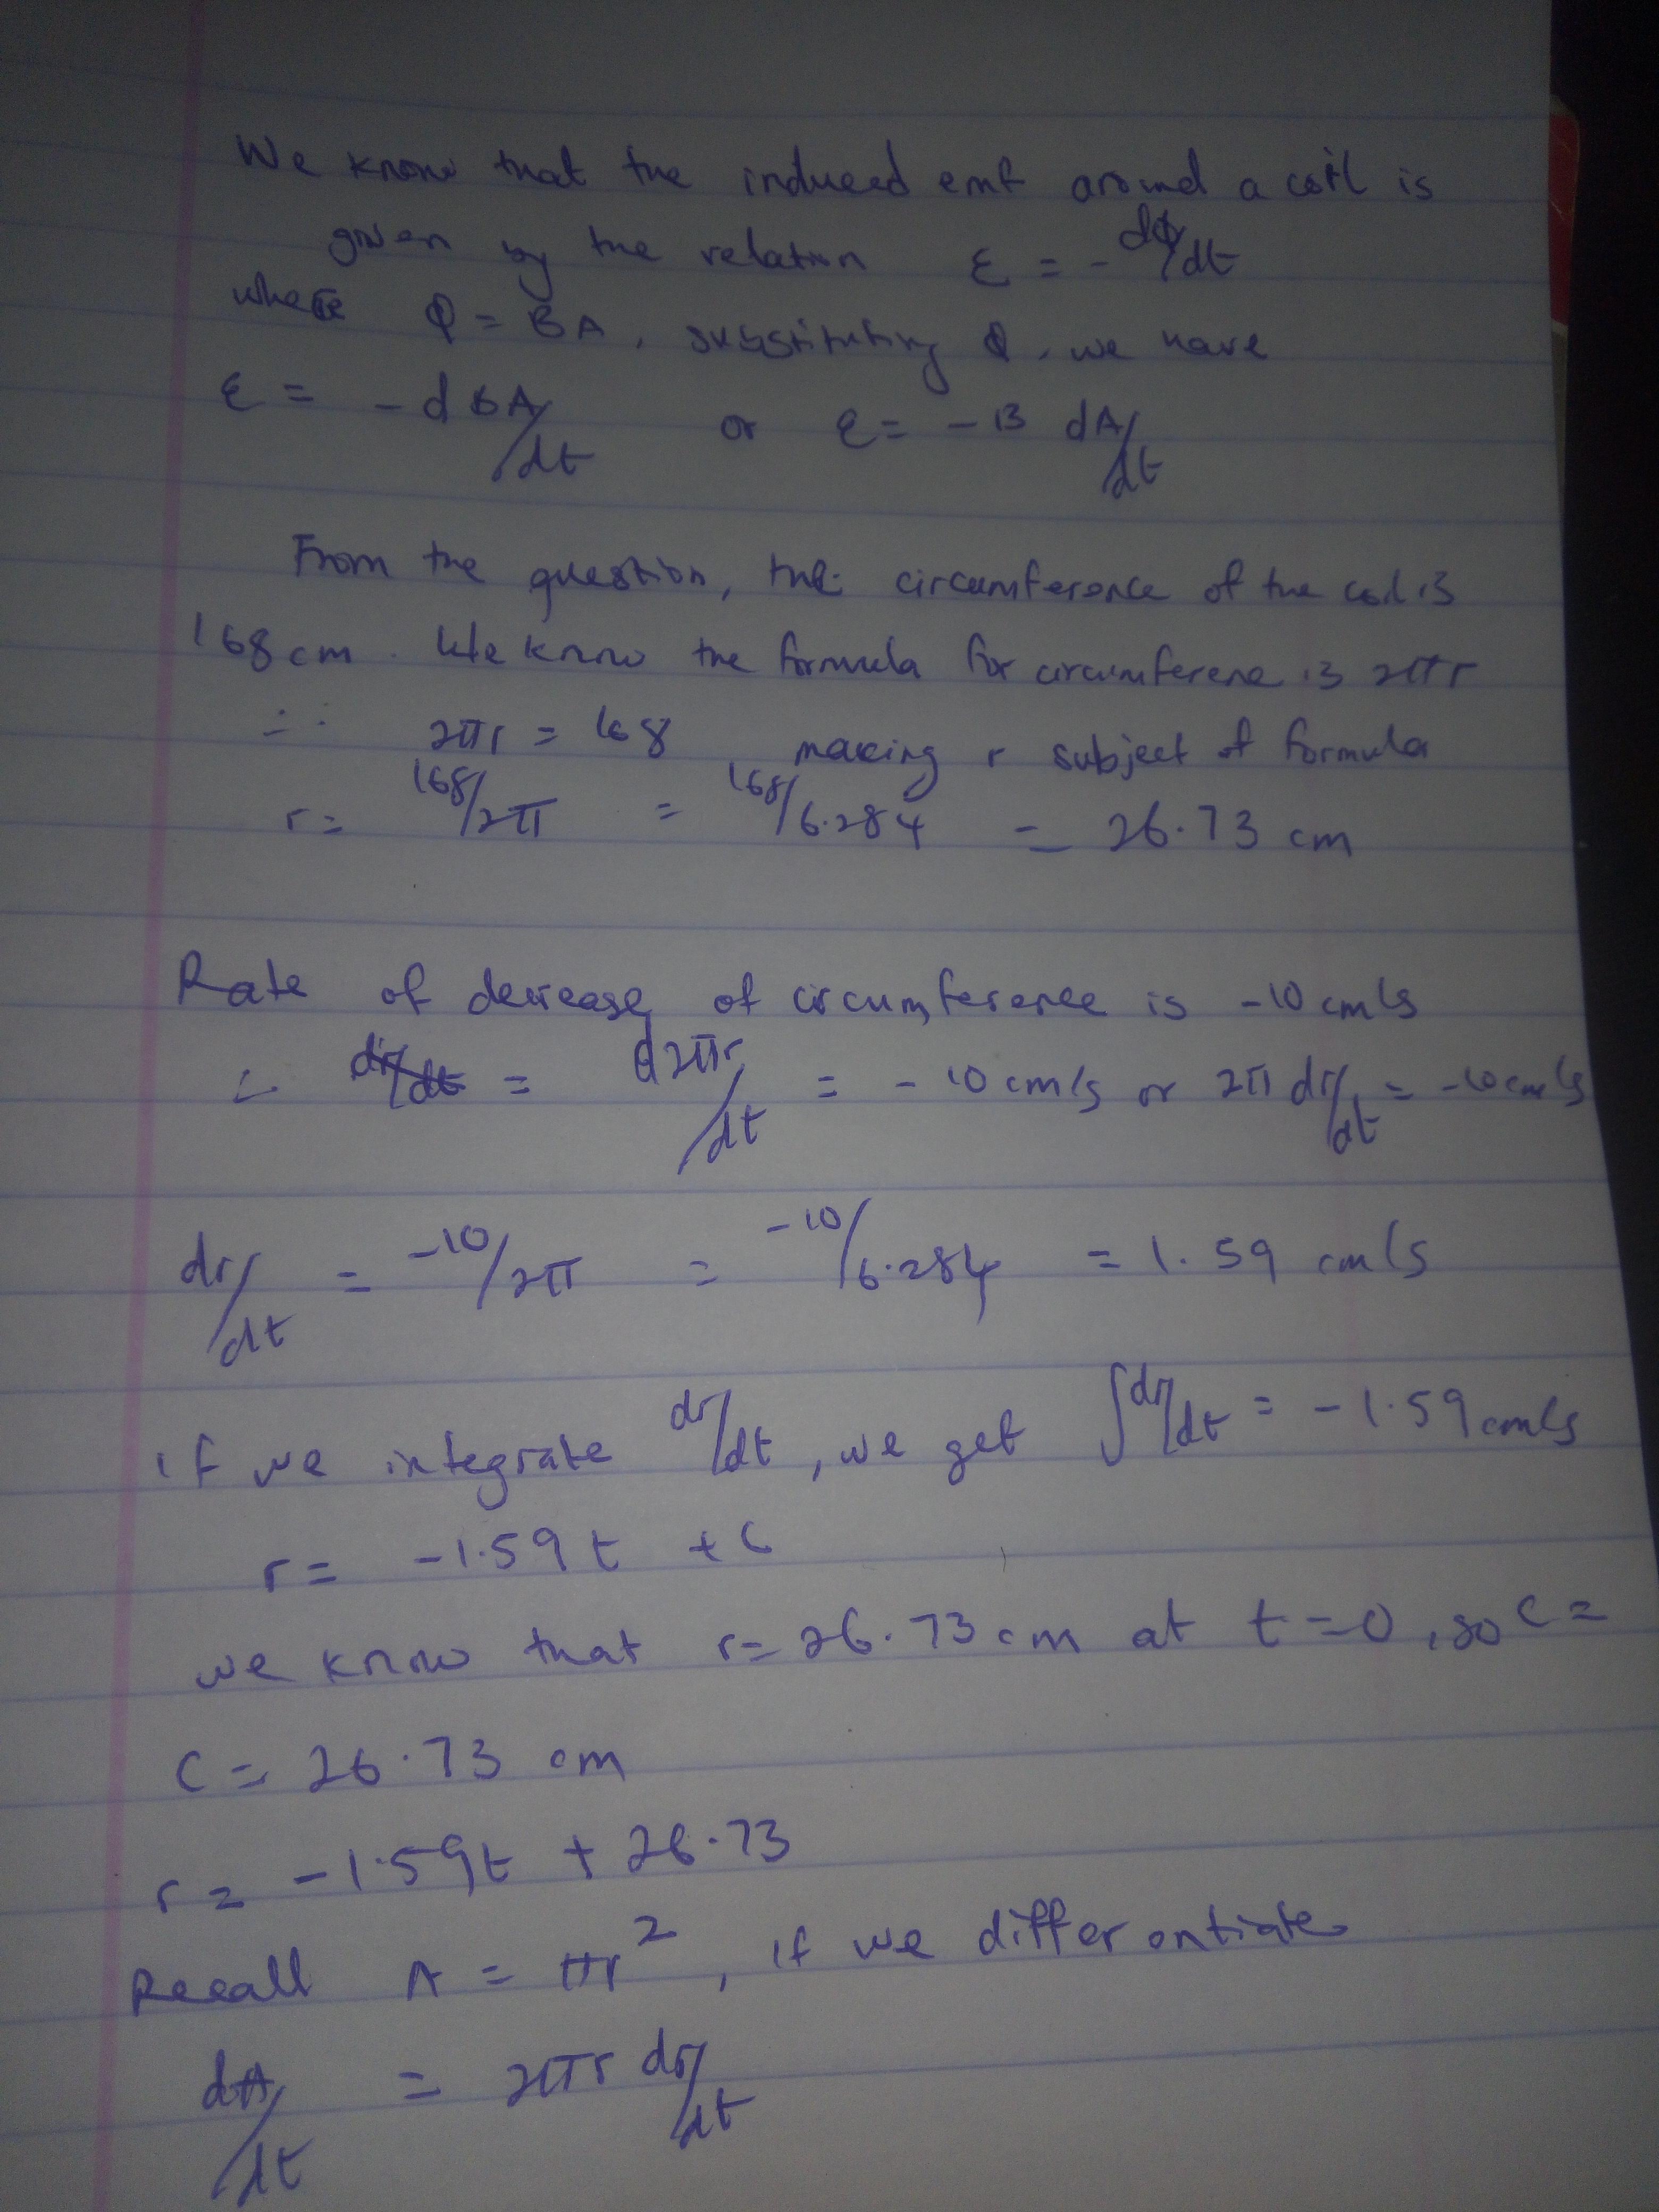 We know that the induced emf around a coil is
given by the relation ε = - dΦ/dt
where Φ = BA, substituting Φ, we have
ε = - dBA/dt or ε = - B dA/dt
From the question, the circumference of the coil is
168 cm. We know the formula for circumference is 2πr
∴ 2πr = 168 making r subject of formula
r = 168/2π = 168/6.284 = 26.73 cm
Rate of decrease of circumference is -10 cm/s
∴ dr/dt = d2πr/dt = -10 cm/s or 2π dr/dt = -10 cm/s
dr/dt = -10/2π = -10/6.284 = 1.59 cm/s
if we integrate dr/dt, we get ∫dr/dt = -1.59 cm/s
r = -1.59t + C
we know that r = 26.73 cm at t = 0, so C =
C = 26.73 cm
r = -1.59t + 26.73
Recall A = πr², if we differentiate
dA/dt = 2πr dr/dt